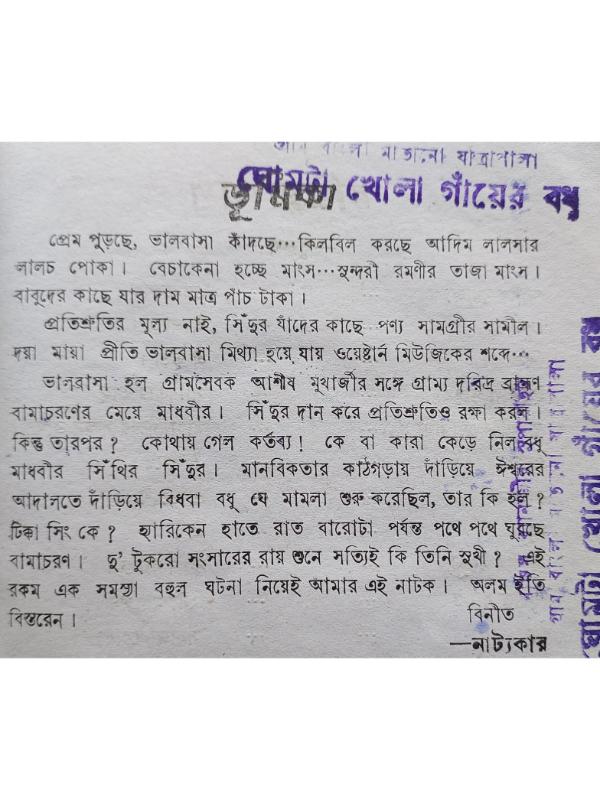 গ্রাম বাংলা মাতানো যাত্রাপালা
ঘোমটা খোলা গাঁয়ের বধূ
ভূমিকা
প্রেম পুড়ছে, ভালবাসা কাঁদছে···কিলবিল করছে আদিম লালসার
লালচ পোকা। বেচাকেনা হচ্ছে মাংস···সুন্দরী রমণীর তাজা মাংস।
বাবুদের কাছে যার দাম মাত্র পাঁচ টাকা।
প্রতিশ্রুতির মূল্য নাই, সিঁদুর যাঁদের কাছে পণ্য সামগ্রীর সামীল।
দয়া মায়া প্রীতি ভালবাসা মিথ্যা হয়ে যায় ওয়েষ্টার্ন মিউজিকের শব্দে···
ভালবাসা হল গ্রামসেবক আশীষ মুখার্জীর সঙ্গে গ্রাম্য দরিদ্র ব্রাহ্মণ
বামাচরণের মেয়ে মাধবীর। সিঁদুর দান করে প্রতিশ্রুতিও রক্ষা করল।
কিন্তু তারপর? কোথায় গেল কর্তব্য! কে বা কারা কেড়ে নিল বধূ
মাধবীর সিঁথির সিঁদুর। মানবিকতার কাঠগড়ায় দাঁড়িয়ে ঈশ্বরের
আদালতে দাঁড়িয়ে বিধবা বধূ যে মামলা শুরু করেছিল, তার কি হল?
টিকা সিং কে? হারিকেন হাতে রাত বারোটা পর্যন্ত পথে পথে ঘুরছে
বামাচরণ। দু’ টুকরো সংসারের রায় শুনে সত্যিই কি তিনি সুখী? এই
রকম এক সমস্যা বহুল ঘটনা নিয়েই আমার এই নাটক। অলম ইতি
বিস্তরেন।
বিনীত
—নাট্যকার
ঘোমটা খোলা গাঁয়ের বধূ